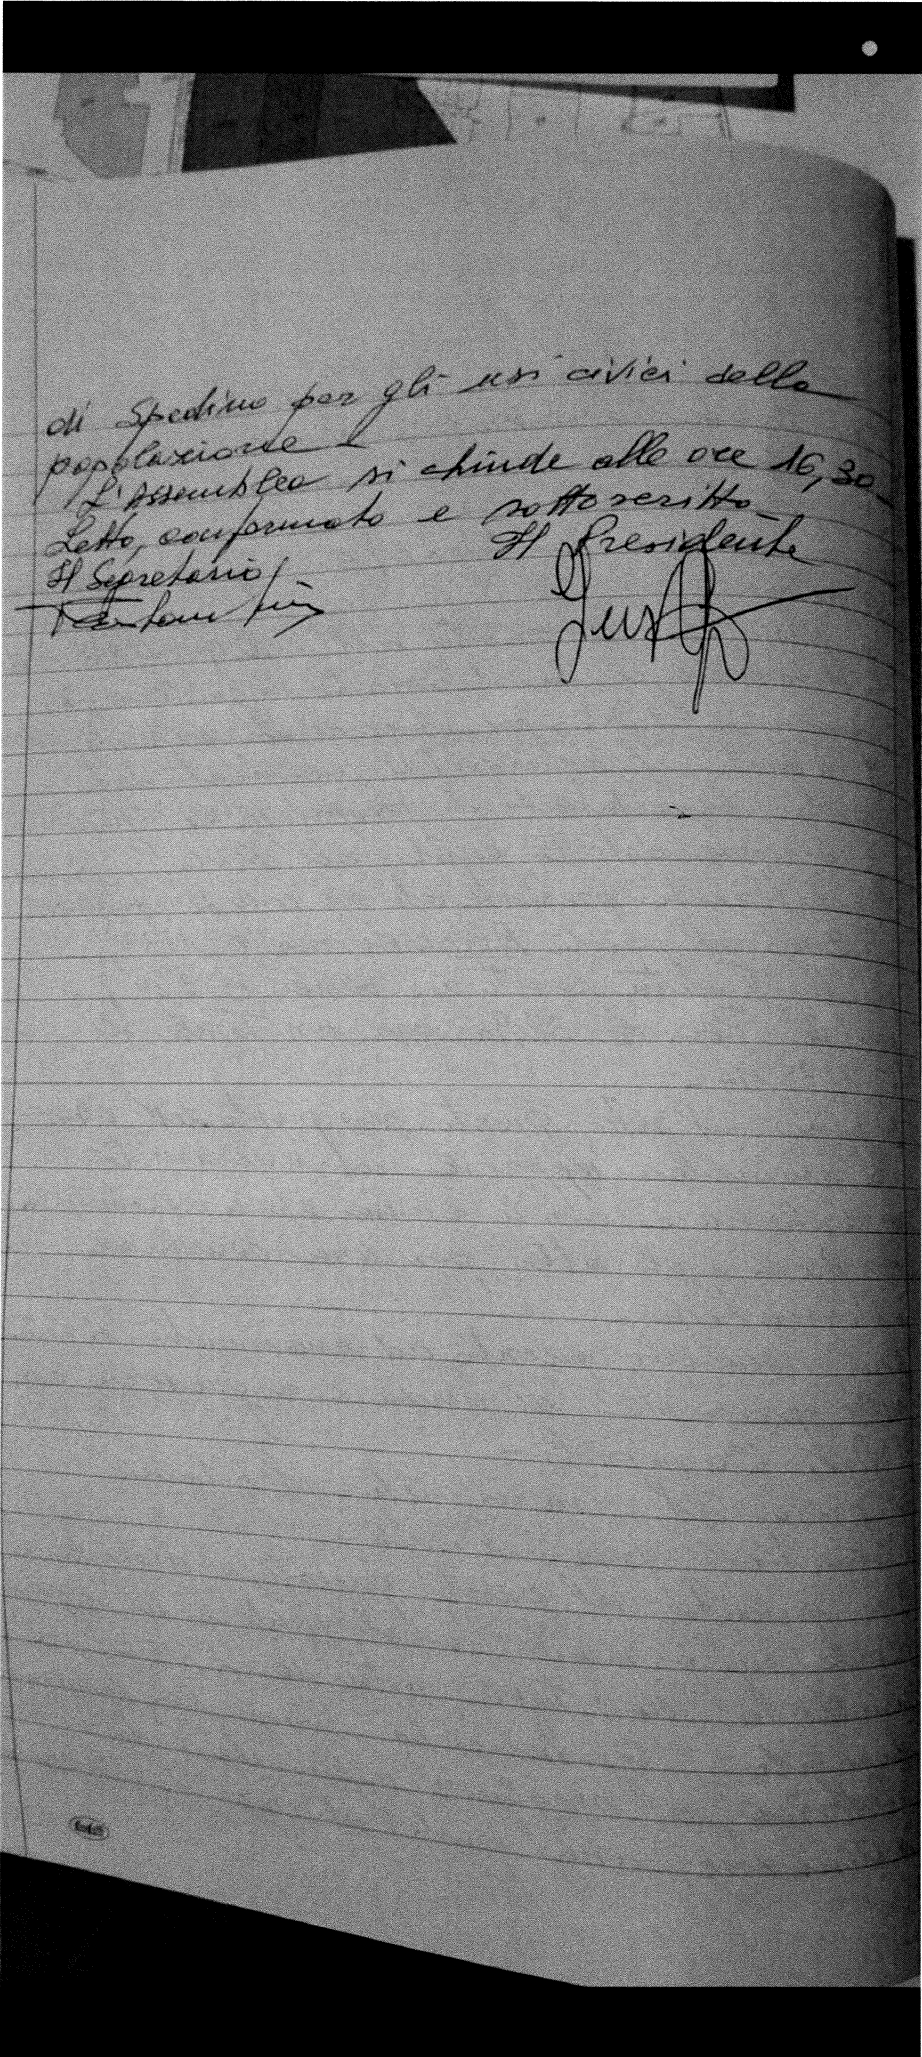 di Spedino per gli usi civici della
popolazione
L'Assemblea si chiude alle ore 16,30
Letto, confermato e sottoscritto
Il Segretario Il Presidente